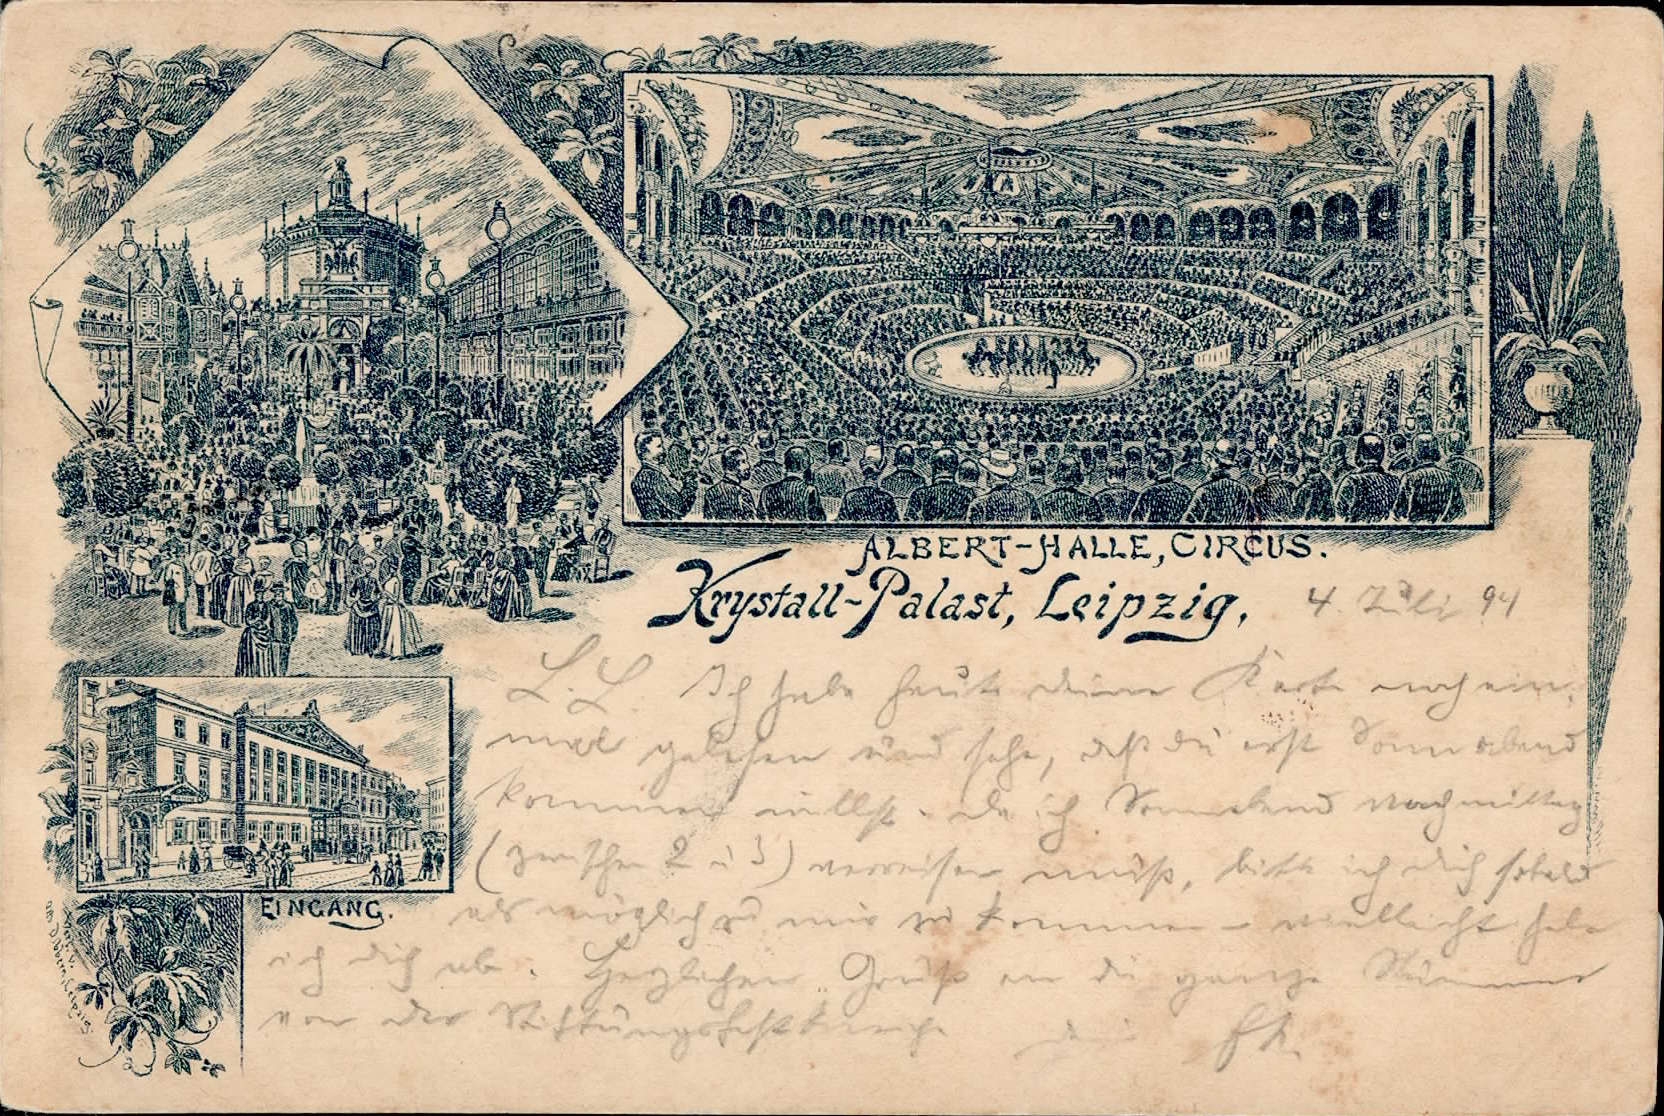 ALBERT-HALLE, CIRCUS.
Krystall-Palast, Leipzig,
4. Juli 94
L. L. Ich habe heute deine Karte noch ein-
mal gelesen und sehe, daß du erst Sonnabend
kommen willst. Da ich Sonnabend Nachmittag
(zwischen 2 u 3) verreisen muß, bitte ich dich sobald
als möglich zu mir zu kommen – vielleicht hole
ich dich ab. Herzlichen Gruß an die ganze
von der
dein
EINGANG.